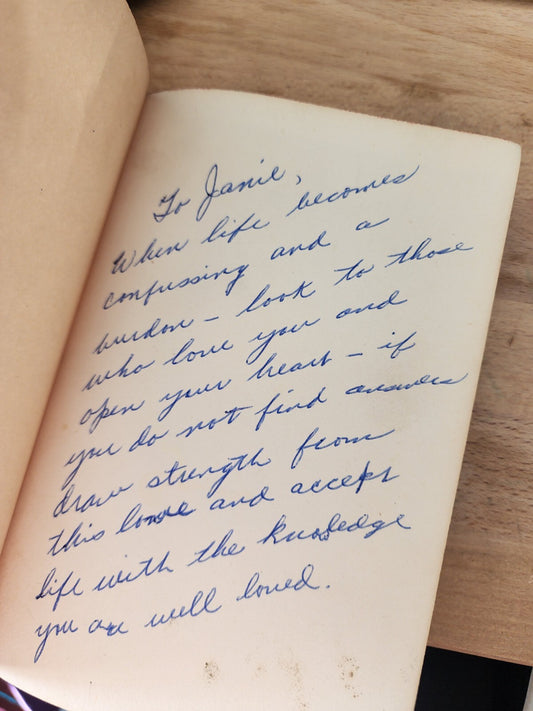 To Janie,
When life becomes
confussing and a
burdon – look to those
who love you and
open your heart – if
you do not find answers
draw strength from
this love and accept
life with the knowledge
you are well loved.